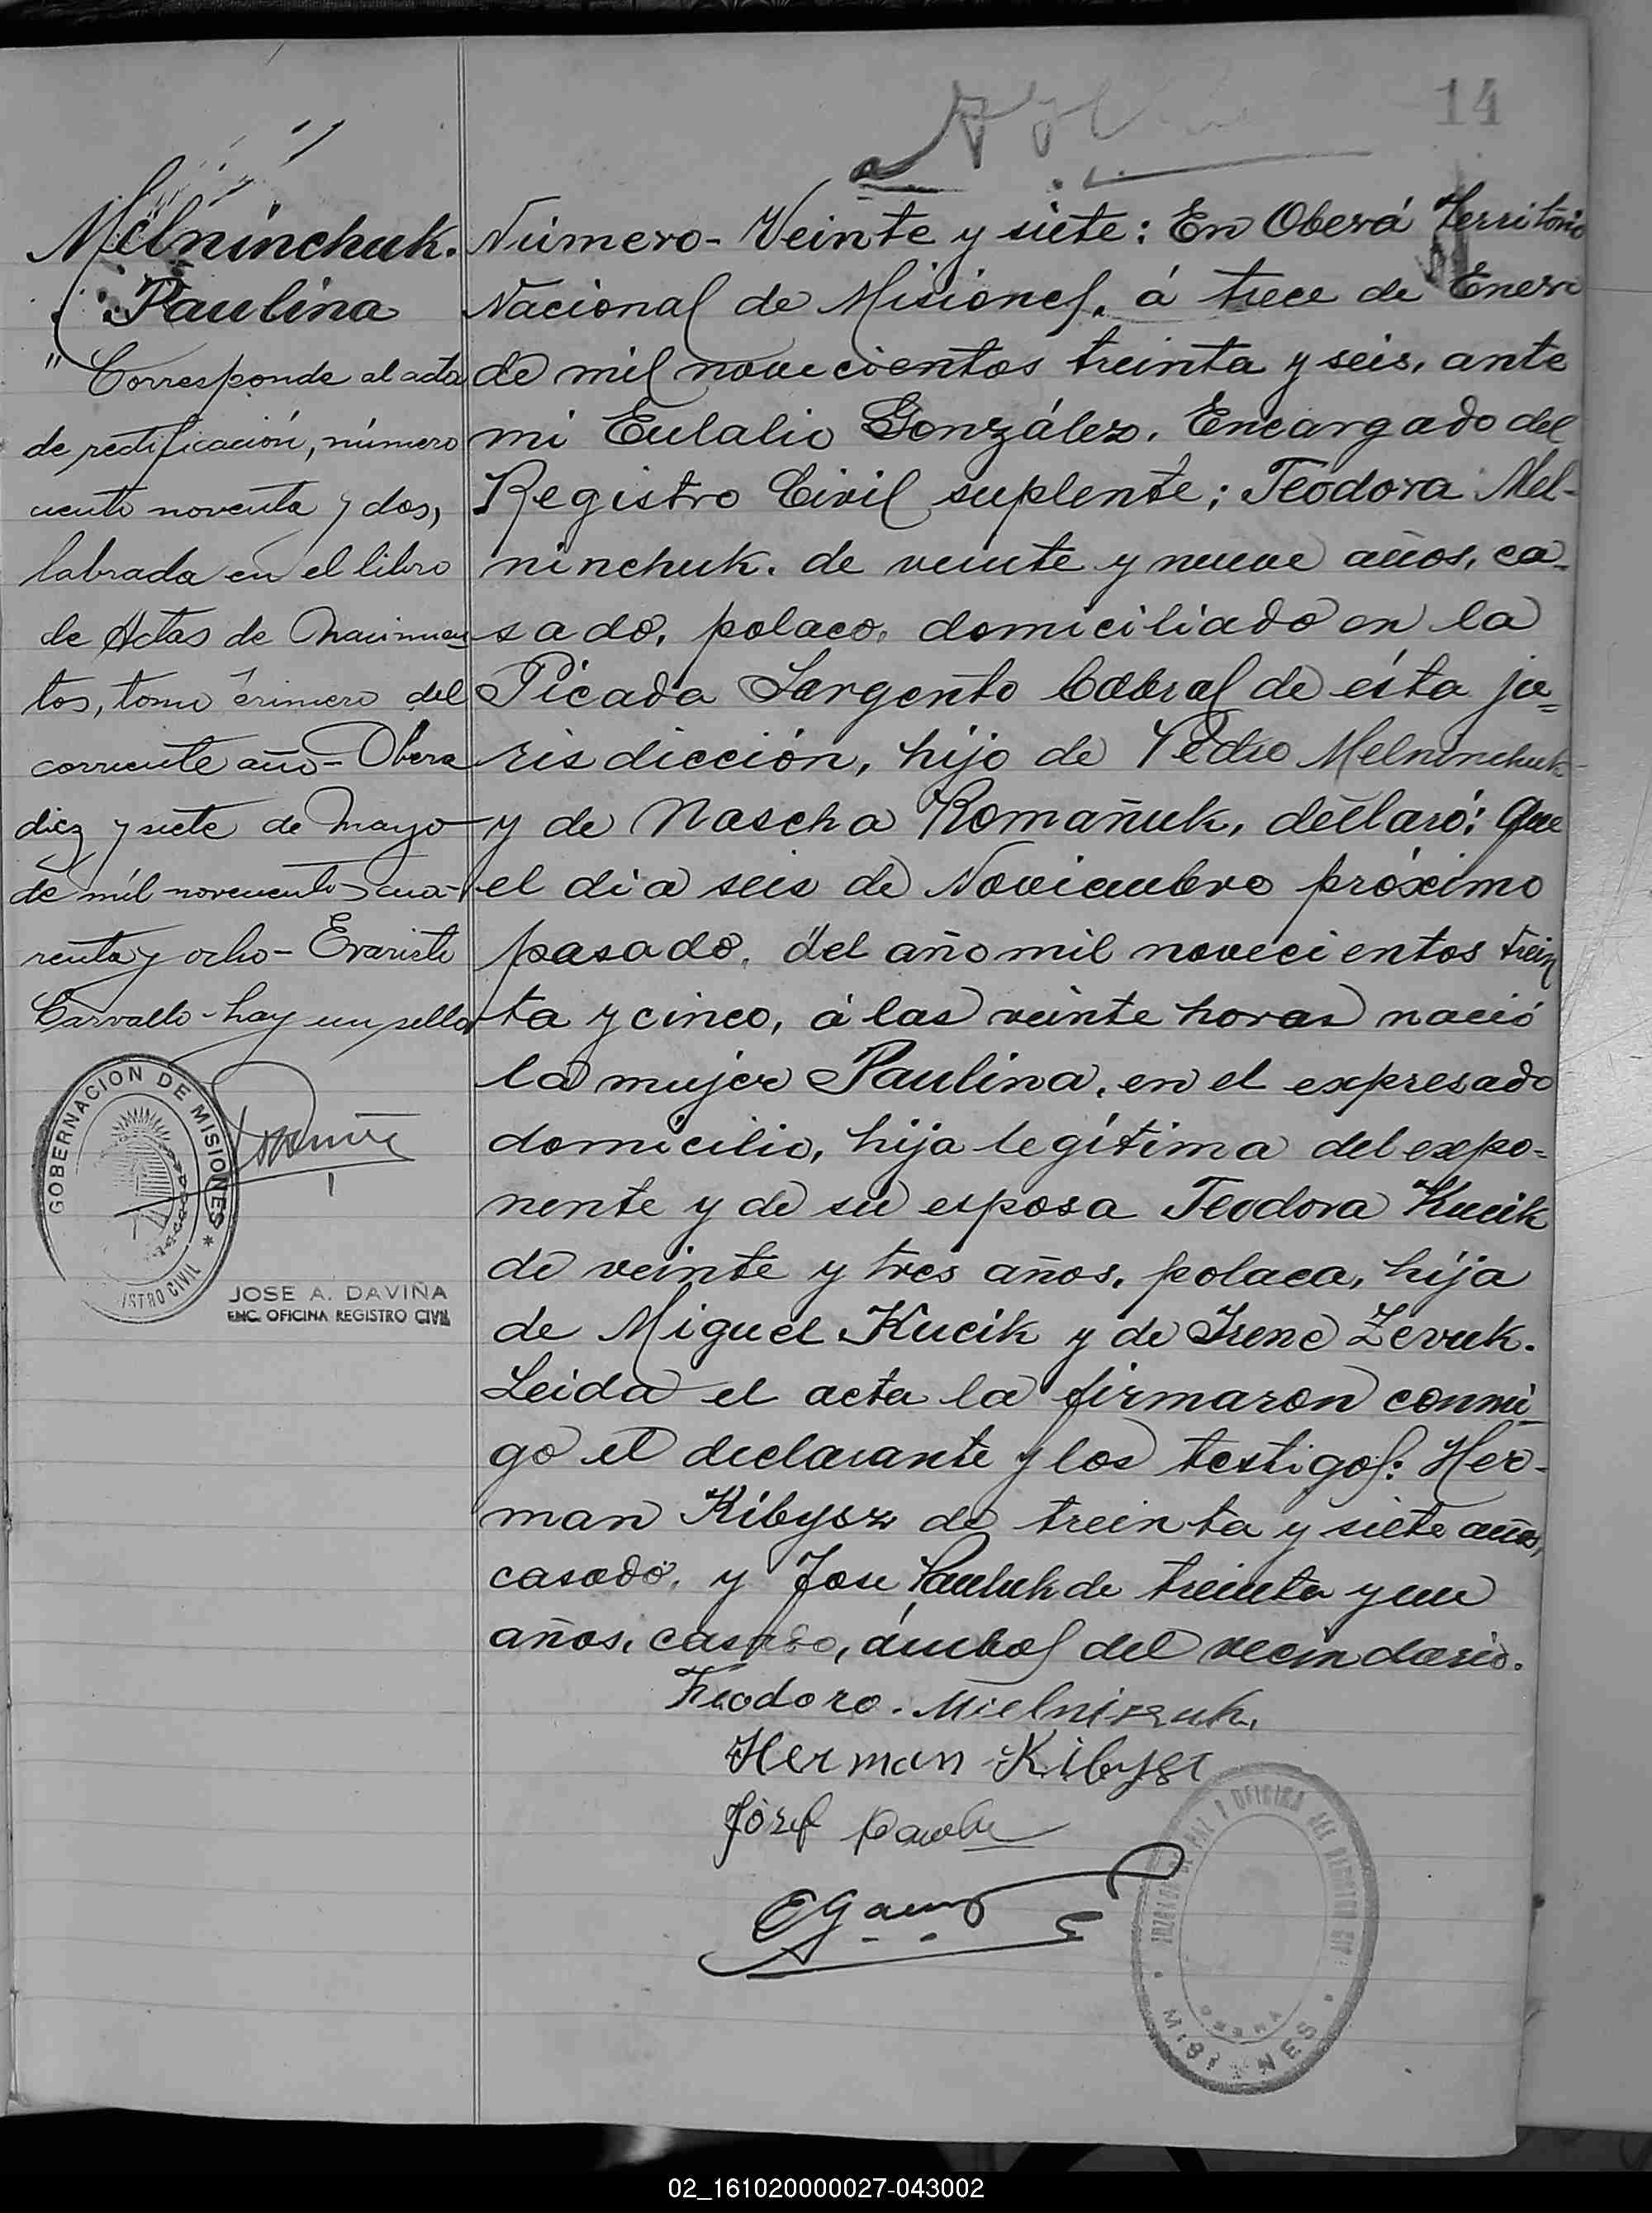 14
Melninchuk.
Paulina
" Corresponde al acta
de rectificación, número
ciento noventa y dos,
labrada en el libro
de Actas de Nacimien-
tos, tomo primero del
corriente año - Oberá
diez y siete de Mayo
de mil novecientos cua-
renta y ocho - Evaristo
Carvallo - hay un sello
GOBERNACION DE MISIONES *
ISTRO CIVIL
JOSE A. DAVIÑA
ENC. OFICINA REGISTRO CIVIL
Número - Veinte y siete: En Oberá Territorio
Nacional de Misiones, á trece de Enero
de mil novecientos treinta y seis, ante
mi Eulalio González, Encargado del
Registro Civil suplente; Teodora Mel-
ninchuk. de veinte y nueve años, ca-
sado, polaco, domiciliado en la
Picada Sargento Cabral de ésta ju=
risdicción, hijo de Pedro Melninchuk
y de Nascha Romañuk, declaró: Que
el dia seis de Noviembre próximo
pasado, del año mil novecientos trein
ta y cinco, á las veinte horas nació
la mujer Paulina, en el expresado
domicilio, hija legítima del expo=
nente y de su esposa Teodora Kucik
de veinte y tres años, polaca, hija
de Miguel Kucik y de Irene Zevuk.
Leida el acta la firmaron conmi-
go el declarante y los testigos: Her-
man Kibysz de treinta y siete años,
casado, y Jose Pauluk de treinta y un
años, casado, ámbos del vecindario.
Teodoro. Mielniczuk,
Herman Kibysz
Józef
MISIONES
02_161020000027-043002